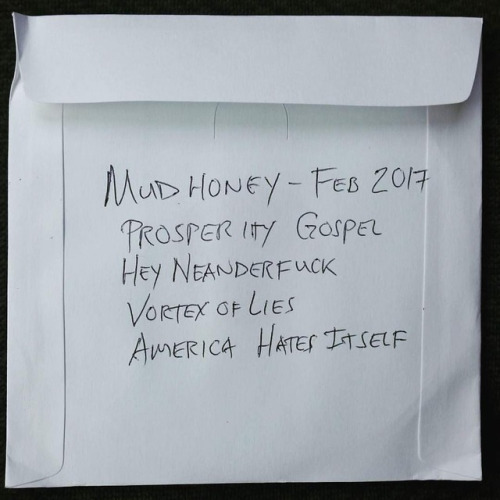 MUDHONEY - FEB 2017
PROSPERITY GOSPEL
HEY NEANDERFUCK
VORTEX OF LIES
AMERICA HATES ITSELF